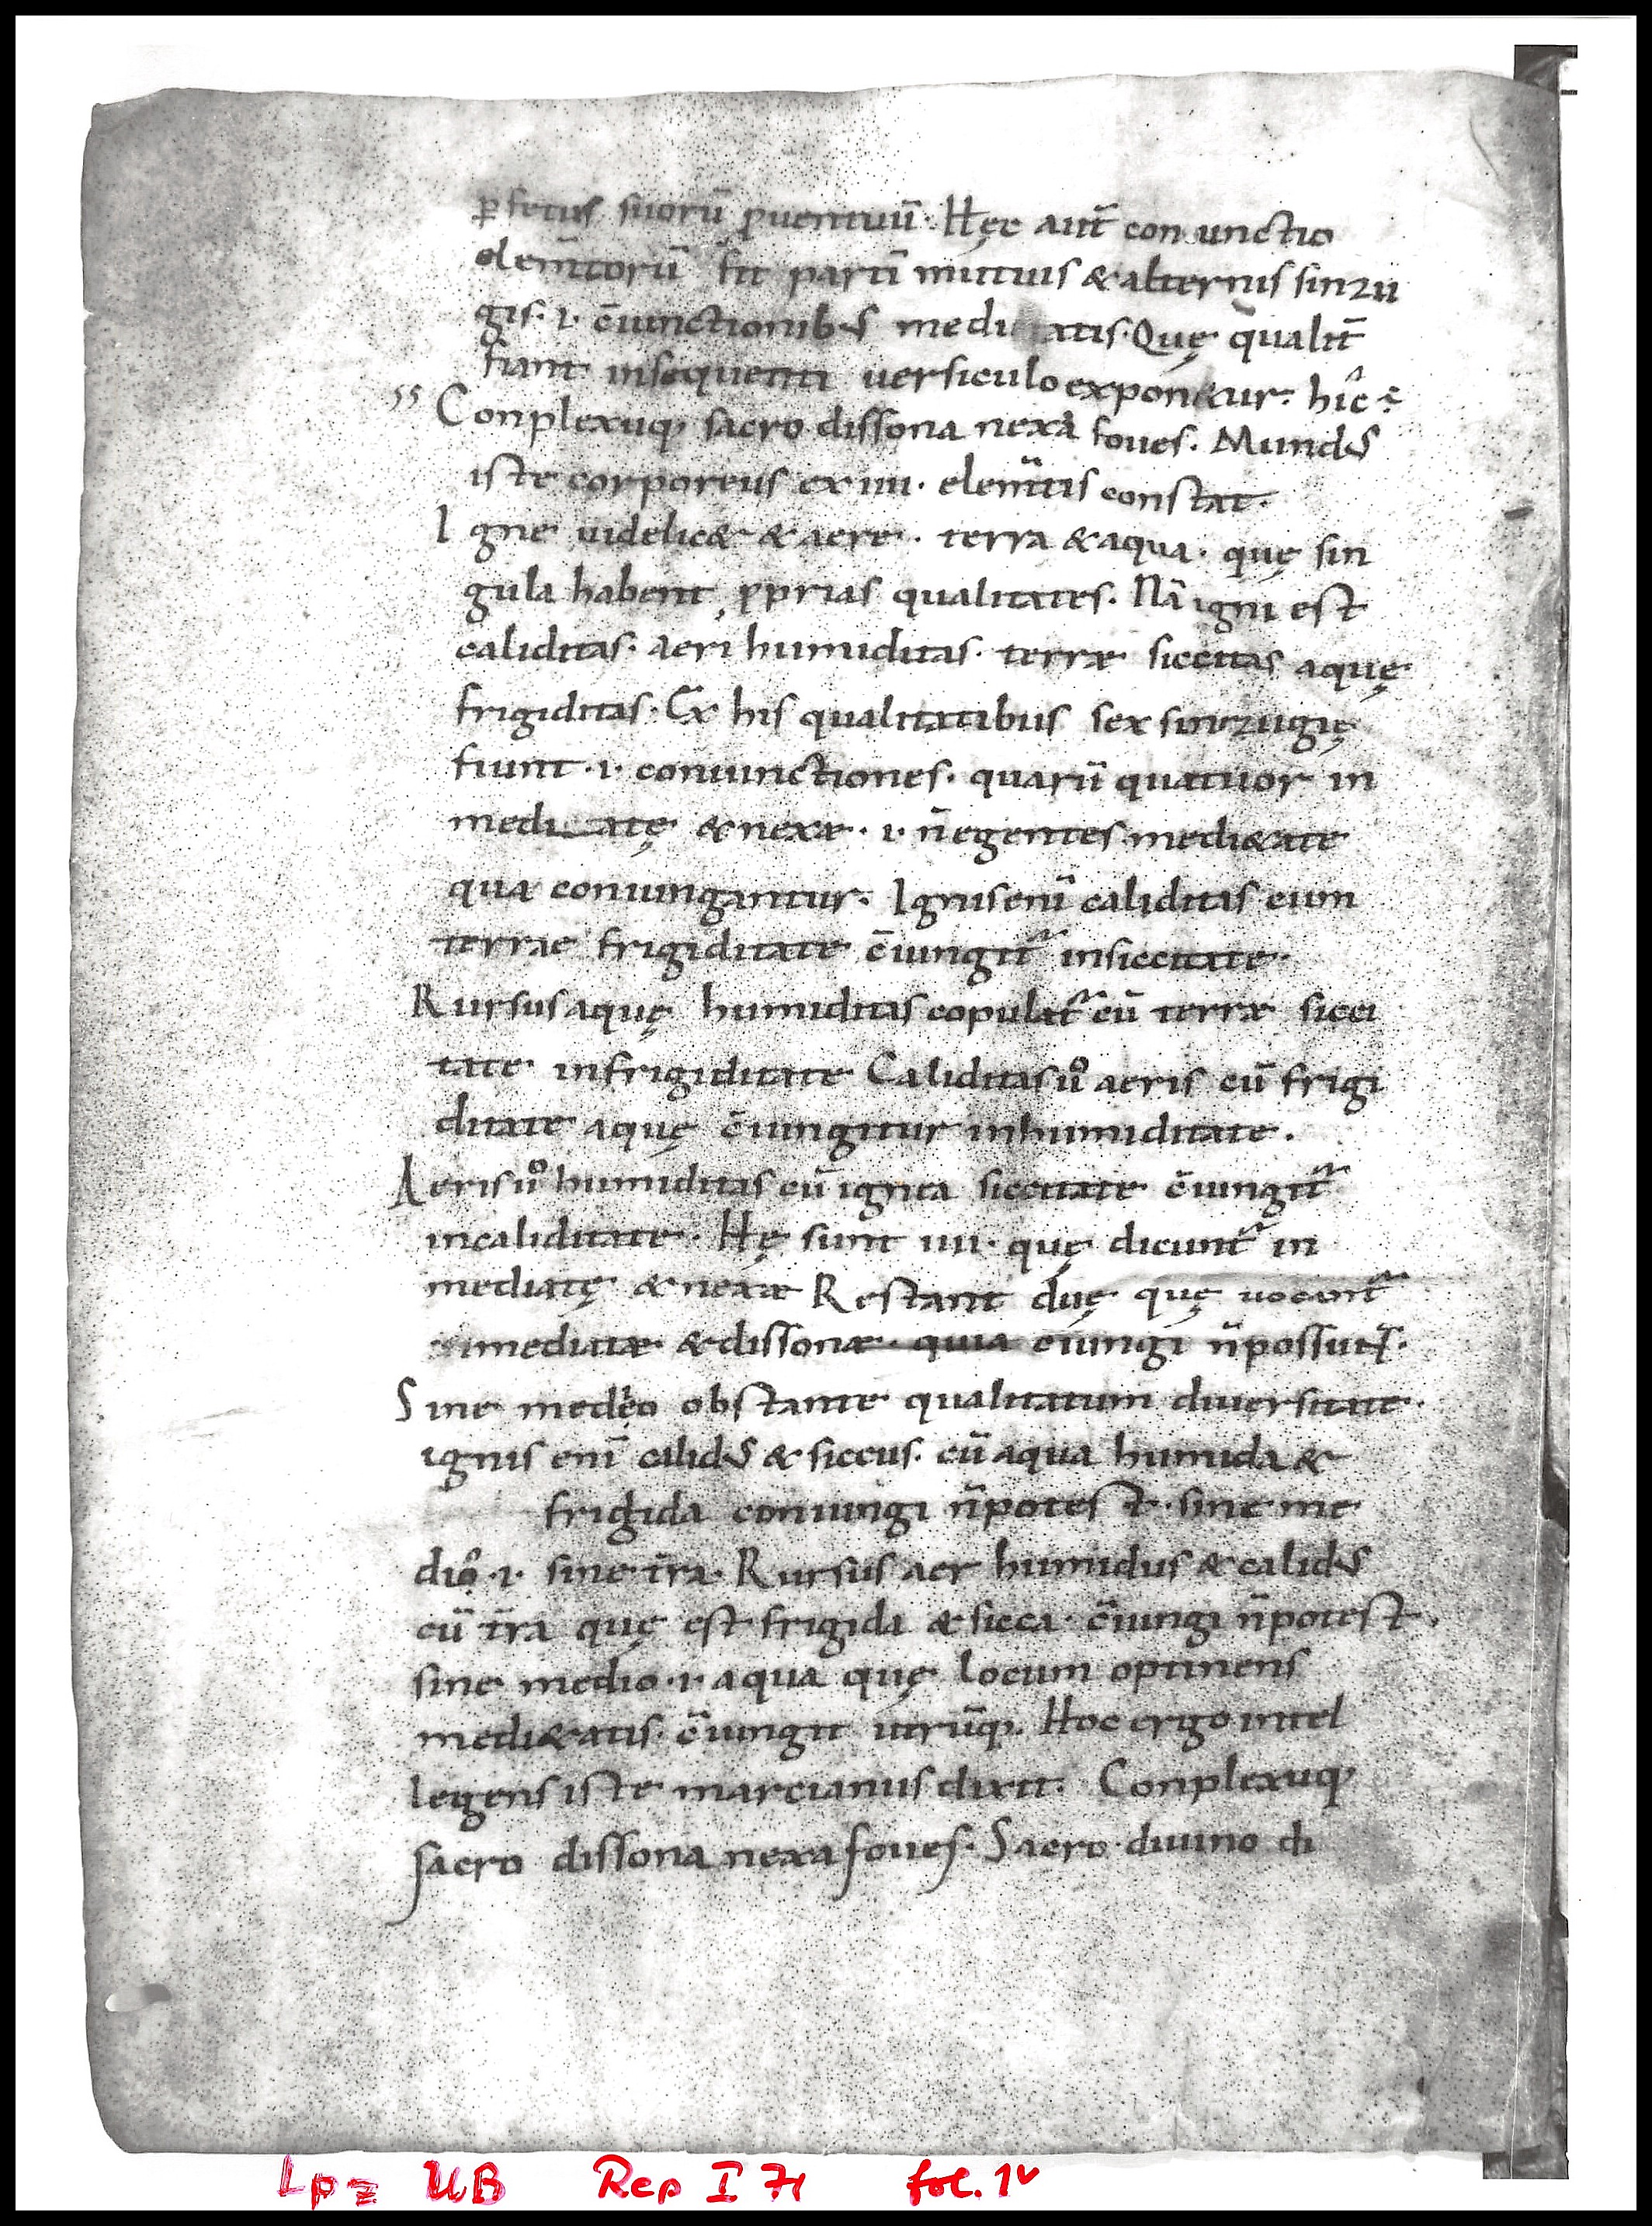 ꝑ fetus suorū ꝓuentuū. Hęc aut̄ coniunctio
elem̄torū fit partī mutuis & alternis sinzu
gis .i. c̄iunctionibꝰ medi atis. Quę qualit̄
fiant insequenti uersiculo exponetur. hic ē
55 Conplexuq; sacro dissona nexa foues. Mundꝰ
iste corporeus ex iiii. elem̄tis constat.
Igne uidelic& & aere. terra & aqua. quę sin
gula habent ꝓprias qualitates. Nā igni est
caliditas. aeri humiditas. terrae siccitas aquę
frigiditas. Ex his qualitatibus sex sinzugię
fiunt .i. coniunctiones. quarū quatuor in
mediatę & nexae .i. n̄ egentes medi&ate
qua coniungantur. Ignis enī caliditas cum
terrae frigiditate c̄iungit᷑ insiccitate.
Rursus aquę humiditas copulat᷑ cū terrae sicci
tate infrigiditate Caliditas ů aeris cū frigi
ditate aquę c̄iungitur inhumiditate.
Aeris ů humiditas cū ignea siccitate c̄iungit᷑
incaliditate. Hę sunt iiii. quę dicunt᷑ in
mediatę & nexae Restant duę quę uocant᷑
mediatae & dissonae. quia c̄iungi n̄ possunt.
Sine medio obstante qualitatum diuersitate.
ignis enī calidꝰ & siccus. cū aqua humida &
frigida coniungi n̄ potest. sine me
dio .i. sine t̄ra. Rursus aer humidus & calidꝰ
cū t̄ra quę est frigida & sicca. c̄iungi n̄ potest
sine medio .i. aqua quę locum optinens
medi&atis. c̄iungit utrūq;. Hoc ergo intel
legens iste marcianus dixit. Conplexuq;
sacro dissona nexa foues. Sacro. diuino di
Lpz UB Rep I 71 fol. 1v